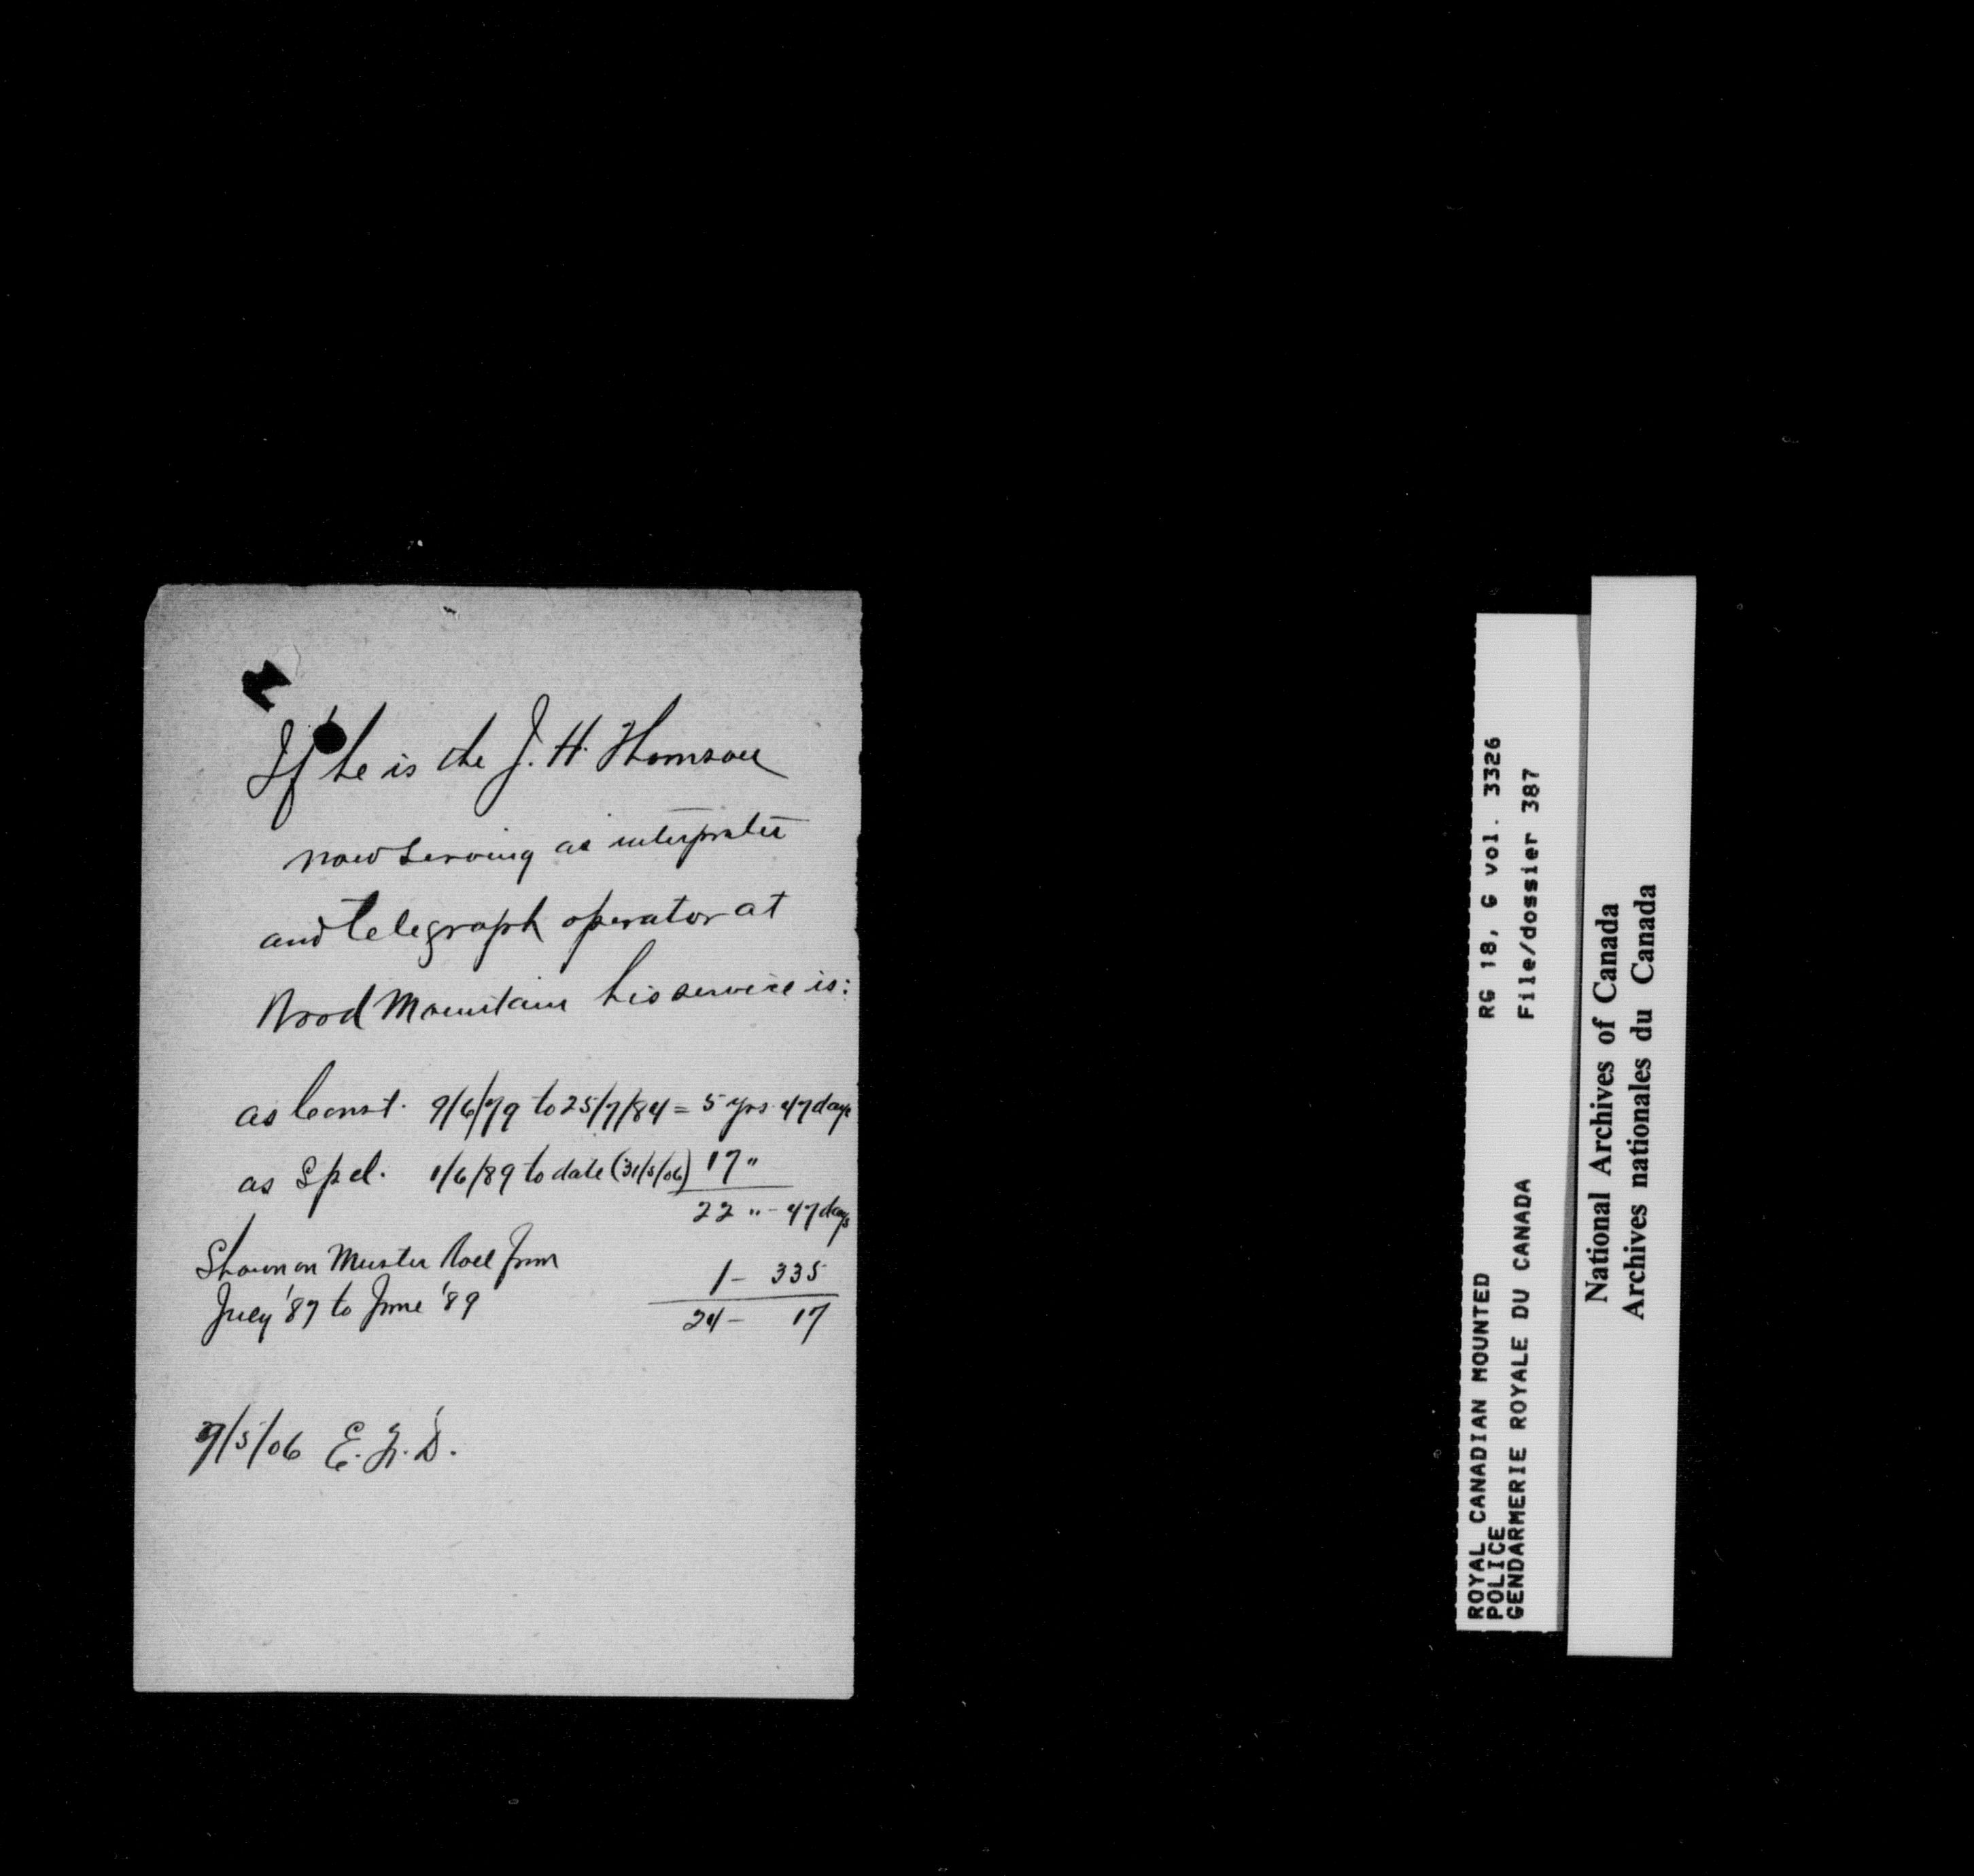 If he is the J. H. Thomson
now serving as interpreter
and telegraph operator at
Wood Mountain his service is:
as Const. 9/6/79 to 25/7/84 = 5 yrs. 47 days
as Spcl. 1/6/89 to date (31/5/06) 17 "
22 " - 47 days
Shown on Muster Roll from
July '87 to June '89
1 - 335
24 - 17
/5/06 E. F. D.
ROYAL CANADIAN MOUNTED
POLICE
GENDARMERIE ROYALE DU CANADA
RG 18, G vol. 3326
File/dossier 387
National Archives of Canada
Archives nationales du Canada